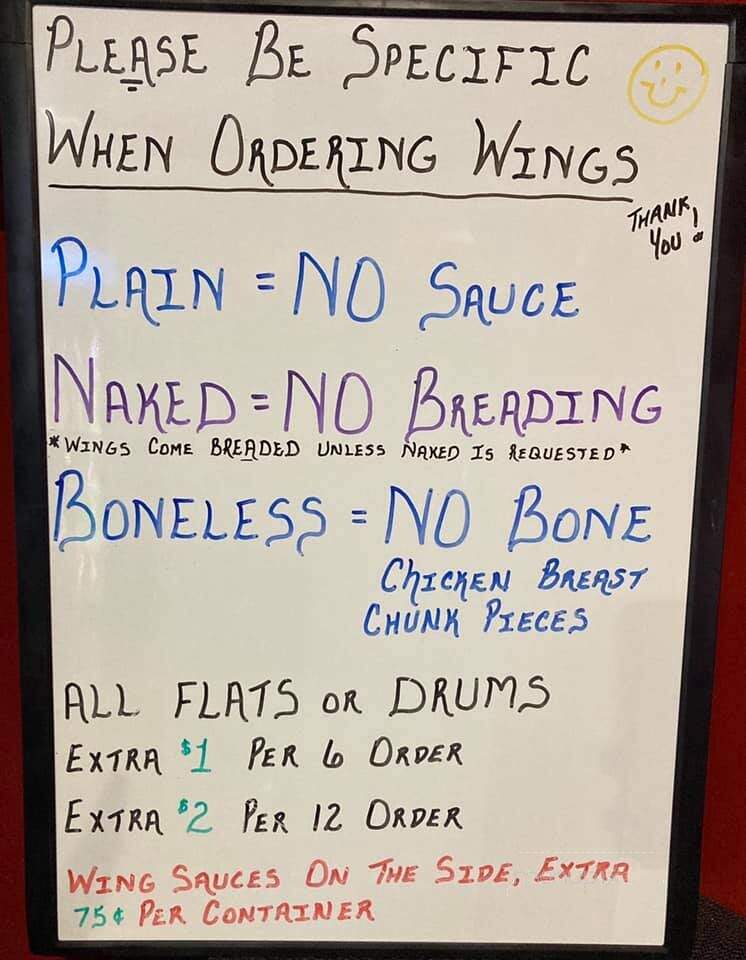 PLEASE BE SPECIFIC
WHEN ORDERING WINGS
THANK
YOU!
PLAIN = NO SAUCE
NAKED = NO BREADING
*WINGS COME BREADED UNLESS NAKED IS REQUESTED*
BONELESS = NO BONE
CHICKEN BREAST
CHUNK PIECES
ALL FLATS OR DRUMS
EXTRA $1 PER 6 ORDER
EXTRA $2 PER 12 ORDER
WING SAUCES ON THE SIDE, EXTRA
75¢ PER CONTAINER